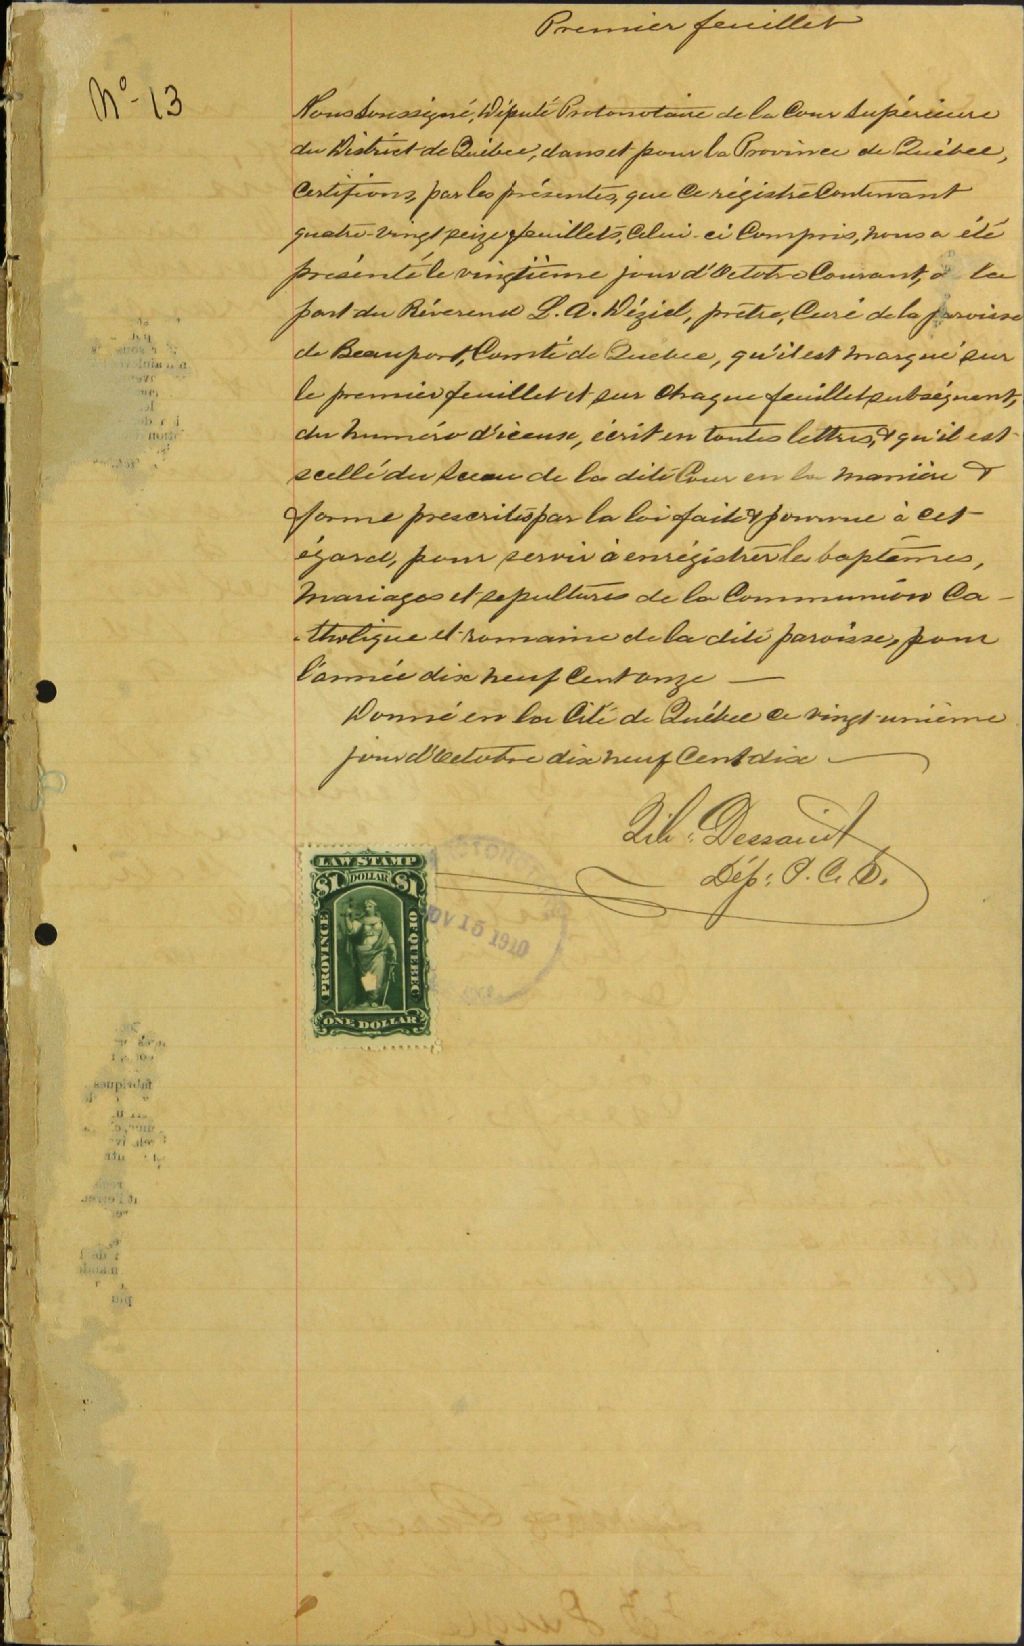 Premier feuillet
No- 13
Nous soussigné, Député Protonotaire de la Cour Supérieure
du District de Québec, dans et pour la Province de Québec,
Certifions, par les présentes, que ce régistre contenant
quatre-vingt seize feuillets, celui-ci compris, nous a été
présenté le vingtième jour d'Octobre Courant, de la
part du Révérend L. A. Déziel, prêtre, Curé de la paroisse
de Beauport, Comté de Québec, qu'il est marqué sur
le premier feuillet et sur chaque feuillet subséquent,
du numéro d'iceux, écrit en toutes lettres, & qu'il est
scellé du Sceau de la dite Cour en la manière &
forme prescrites par la loi faite & pourvue à cet
égard, pour servir à enrégistrer les baptêmes,
Mariages et sepultures de la Communion Ca-
tholique et romaine de la dite paroisse, pour
l'année dix neuf Cent onze —
Donné en la Cité de Québec ce vingt-unième
jour d'Octobre dix neuf Cent dix —
Dessaint
Dép: P. C. S.
LAW STAMP
$1 DOLLAR $1
PROVINCE
OF QUEBEC
ONE DOLLAR
OV 15 1910